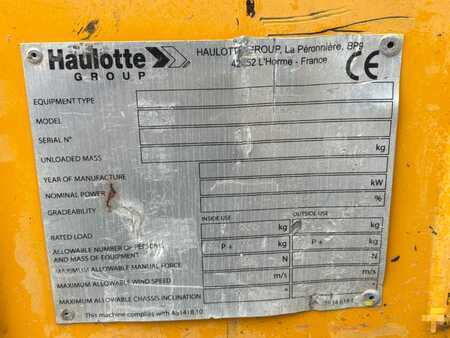 Haulotte
GROUP
HAULOTTE GROUP, La Péronnière, BP9
42152 L'Horme - France
CE
EQUIPMENT TYPE
MODEL
SERIAL N°
UNLOADED MASS kg
YEAR OF MANUFACTURE
NOMINAL POWER kW
GRADEABILITY %
INSIDE USE OUTSIDE USE
RATED LOAD kg kg
ALLOWABLE NUMBER OF PERSONS
AND MASS OF EQUIPMENT P + kg P + kg
MAXIMUM ALLOWABLE MANUAL FORCE N N
MAXIMUM ALLOWABLE WIND SPEED m/s m/s
MAXIMUM ALLOWABLE CHASSIS INCLINATION ° °
This machine complies with AS1418.10